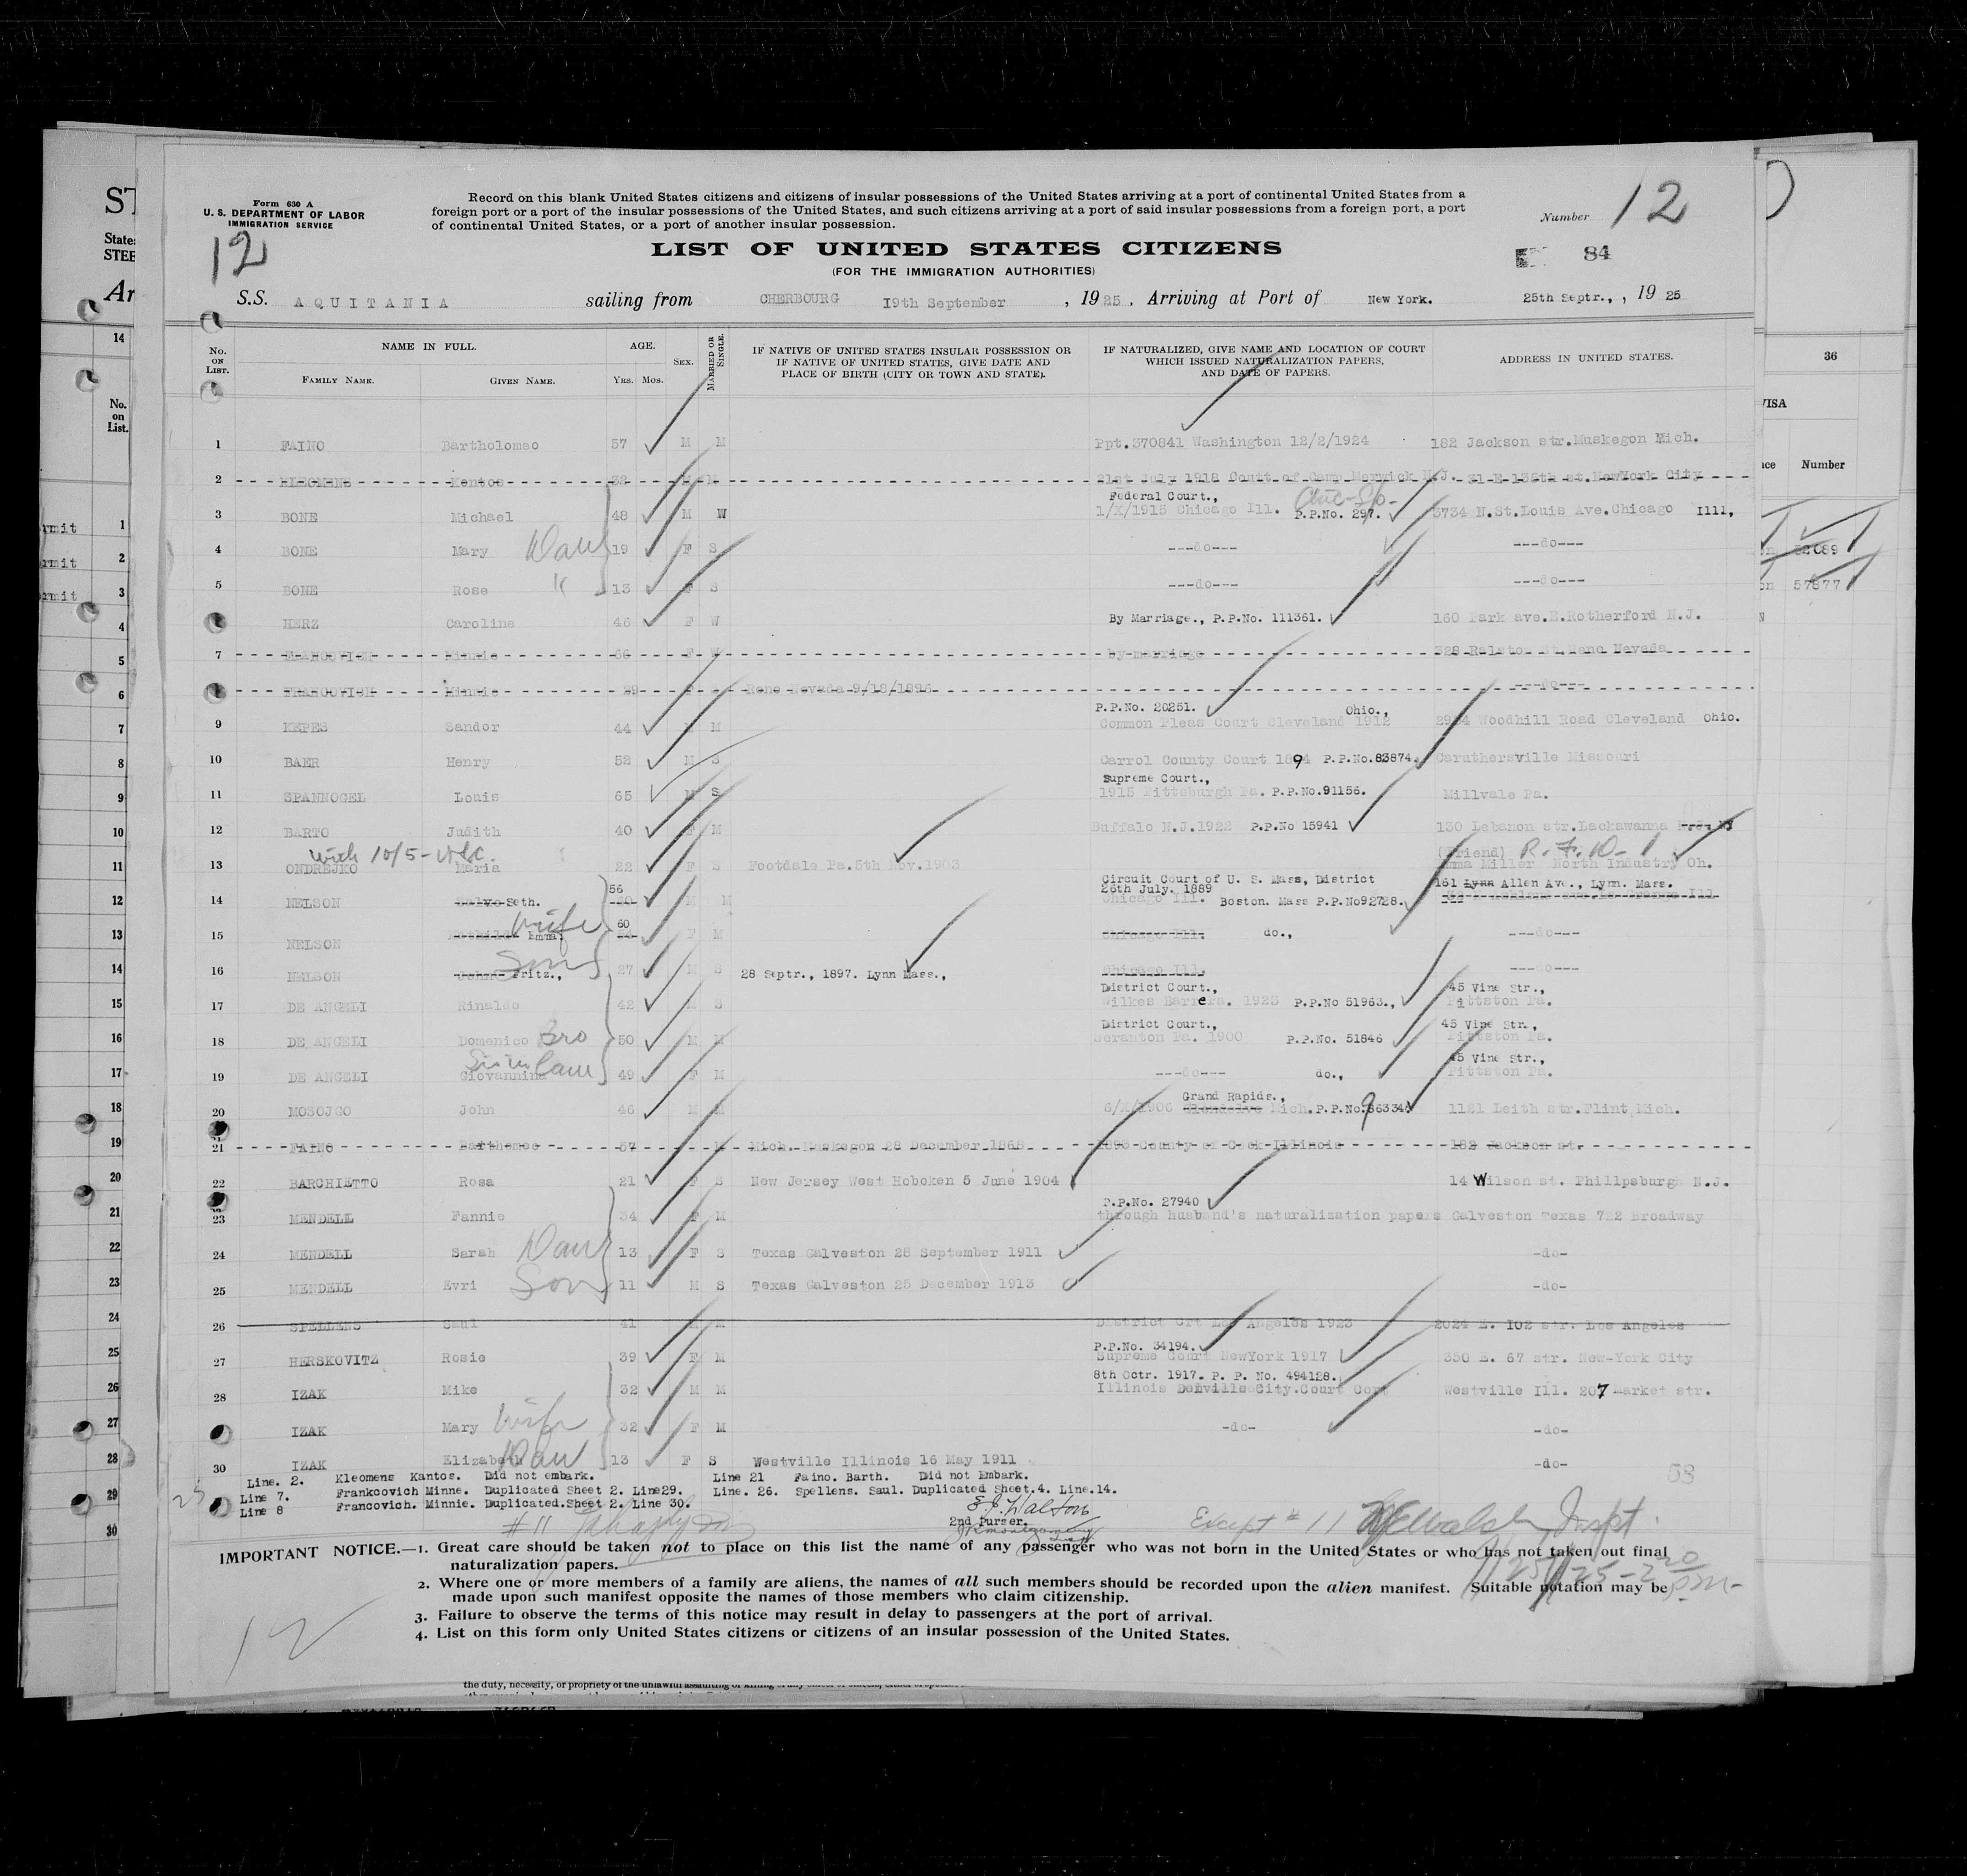 Form 630 A
U. S. DEPARTMENT OF LABOR
IMMIGRATION SERVICE
12
Record on this blank United States citizens and citizens of insular possessions of the United States arriving at a port of continental United States from a
foreign port or a port of the insular possessions of the United States, and such citizens arriving at a port of said insular possessions from a foreign port, a port
of continental United States, or a port of another insular possession.
Number 12
LIST OF UNITED STATES CITIZENS
(FOR THE IMMIGRATION AUTHORITIES)
84
S.S. AQUITANIA sailing from CHERBOURG 19th September , 1925 , Arriving at Port of New York. 25th Septr., , 19 25
No. ON LIST. NAME IN FULL. FAMILY NAME. GIVEN NAME. AGE. YRS. MOS. SEX. MARRIED OR SINGLE.
IF NATIVE OF UNITED STATES INSULAR POSSESSION OR IF NATIVE OF UNITED STATES, GIVE DATE AND PLACE OF BIRTH (CITY OR TOWN AND STATE).
IF NATURALIZED, GIVE NAME AND LOCATION OF COURT WHICH ISSUED NATURALIZATION PAPERS, AND DATE OF PAPERS.
ADDRESS IN UNITED STATES.
1 FAINO Bartholomeo 57 M M Ppt.370841 Washington 12/2/1924 182 Jackson str.Muskegon Mich.
2 Kentos 21st July 1918 Court of Camp Merrick N.J. 31-E-135th st.NewYork City
Federal Court.,
3 BONE Michael 48 M W 1/X/1915 Chicago Ill. P.P.No. 297. 3734 N.St.Louis Ave.Chicago Illl,
4 BONE Mary Dau 19 F S ---do--- ---do---
5 BONE Rose " 13 F S ---do--- ---do---
HERZ Caroline 46 F W By Marriage., P.P.No. 111361. 160 Park ave.E.Rotherford N.J.
7 FRANCOVISH Minnie 66 F W by marriage 328 Ralston st.Reno Nevada
FRANCOVISH Minnie 29 F Reno Nevada 9/18/1896 ---do---
P.P.No. 20251. Ohio.,
9 KEPES Sandor 44 M M Common Pleas Court Cleveland 1912 Woodhill Road Cleveland Ohio.
10 BAER Henry 52 M S Carrol County Court P.P.No.83874. Caruthersville Missouri
Supreme Court.,
11 SPANNOGEL Louis 65 M S 1915 Pittsburgh Pa. P.P.No.91156. Millvale Pa.
12 BARTO Judith 40 F M Buffalo N.J.1922 P.P.No 15941 130 Lebanon str.Lackawanna NY
with 10/5-
(Friend) R.F.D-1
13 ONDREJKO Maria 22 F S Footdale Pa.5th Nov.1903 Emma Miller North Industry Oh.
Circuit Court of U. S. Mass, District
56 26th July. 1889 161 Lynn Allen Ave., Lynn. Mass.
14 NELSON Seth. M M Chicago Ill. Boston. Mass P.P.No92728.
Wife 60
15 NELSON Emma. F M Chicago Ill. do., ---do---
Son
16 NELSON John Fritz., 27 M S 28 Septr., 1897. Lynn Mass., Chicago Ill. ---do---
District Court., 45 Vine Str.,
17 DE ANGELI Rinaldo 42 M S Wilkes Barre Pa. 1923 P.P.No 51963., Pittston Pa.
District Court., 45 Vine Str.,
18 DE ANGELI Domenico Bro 50 M M Scranton Pa. 1900 P.P.No. 51846 Pittston Pa.
Sis in law 45 Vine Str.,
19 DE ANGELI Giovannina 49 F M ---do--- do., Pittston Pa.
Grand Rapids.,
20 MOSOJCO John 46 M M 6/X/1906 Mich.P.P.No. 1121 Leith str.Flint Mich.
21 FAINO Barthomeo 57 M Mich. Muskegon 28 December 1868 1895 County of Cook Illinois 182 Jackson st.
22 BARCHIETTO Rosa 21 F S New Jersey West Hoboken 5 June 1904 14 Wilson st. Phillpsburgh N.J.
P.P.No. 27940
23 MENDELL Fannie 34 F M through husband's naturalization papers Galveston Texas 722 Broadway
24 MENDELL Sarah Dau 13 F S Texas Galveston 28 September 1911 -do-
25 MENDELL Evri Son 11 M S Texas Galveston 25 December 1913 -do-
26 SPELLENS Saul 41 M M District Crt Los Angeles 1923 2024 E. 102 str. Los Angeles
P.P.No. 34194.
27 HERSKOVITZ Rosie 39 F M Supreme Court NewYork 1917 350 E. 67 str. New-York City
8th Octr. 1917. P. P. No. 494128.
28 IZAK Mike 32 M M Illinois Denville City.Court Westville Ill. 207 market str.
IZAK Mary Wife 32 F M -do- -do-
30 IZAK Elizabeth Dau 13 F S Westville Illinois 16 May 1911 -do-
58
Line. 2. Kleomens Kantos. Did not embark. Line 21 Faino. Barth. Did not Embark.
Line 7. Frankcovich Minne. Duplicated Sheet 2. Line29. Line. 26. Spellens. Saul. Duplicated Sheet.4. Line.14.
Line 8 Francovich. Minnie. Duplicated.Sheet 2. Line 30.
E.J. Walton
2nd Purser.
Except #11 Walsh Inspt.
# 11
IMPORTANT NOTICE.—1. Great care should be taken not to place on this list the name of any passenger who was not born in the United States or who has not taken out final
naturalization papers.
2. Where one or more members of a family are aliens, the names of all such members should be recorded upon the alien manifest. Suitable notation may be
made upon such manifest opposite the names of those members who claim citizenship.
3. Failure to observe the terms of this notice may result in delay to passengers at the port of arrival.
4. List on this form only United States citizens or citizens of an insular possession of the United States.
12